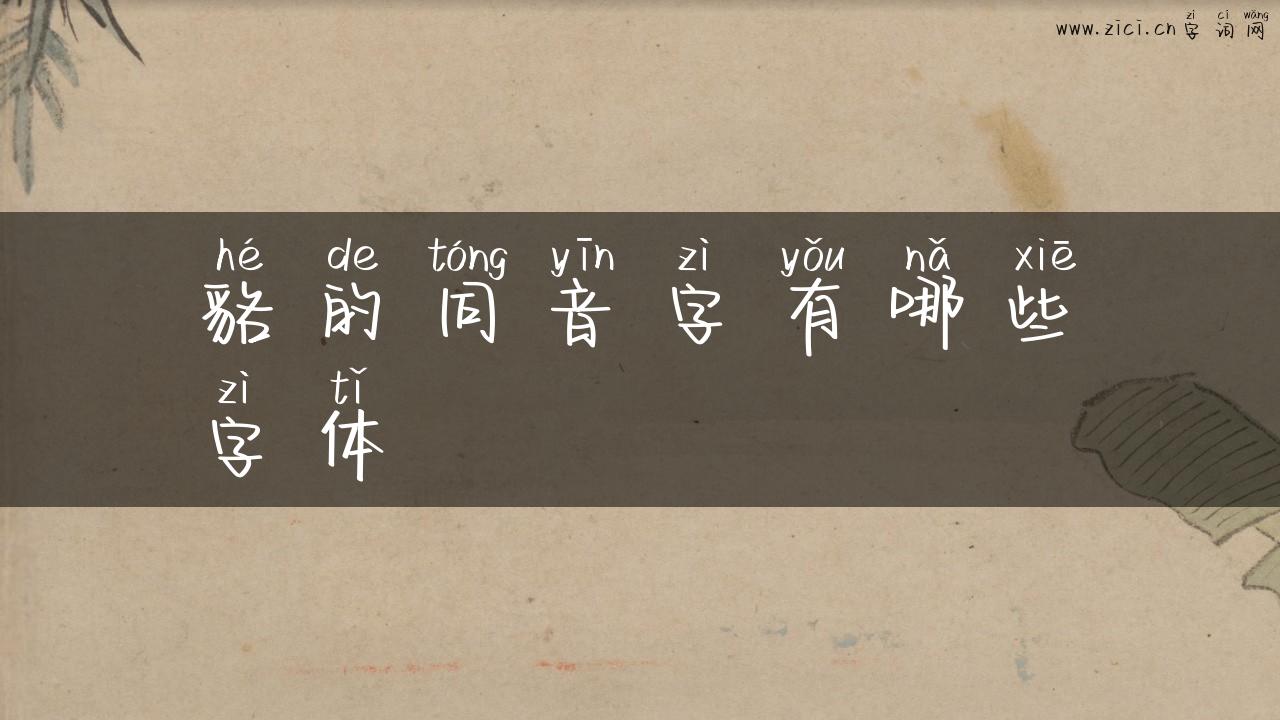 zì cí wǎng
www.zici.cn 字词网
hé de tóng yīn zì yǒu nǎ xiē
貉的同音字有哪些
zì tǐ
字体